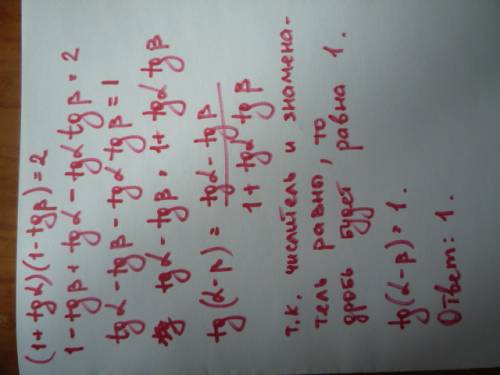 (1 + tgα)(1 - tgβ) = 2
1 - tgβ + tgα - tgα tgβ = 2
tgα - tgβ - tgα tgβ = 1
tgα - tgβ = 1 + tgα tgβ
tg(α - β) = (tgα - tgβ) / (1 + tgα tgβ)
т.к. числитель и знамена-
тель равны, то
дробь будет равна 1.
tg(α - β) = 1.
Ответ: 1.